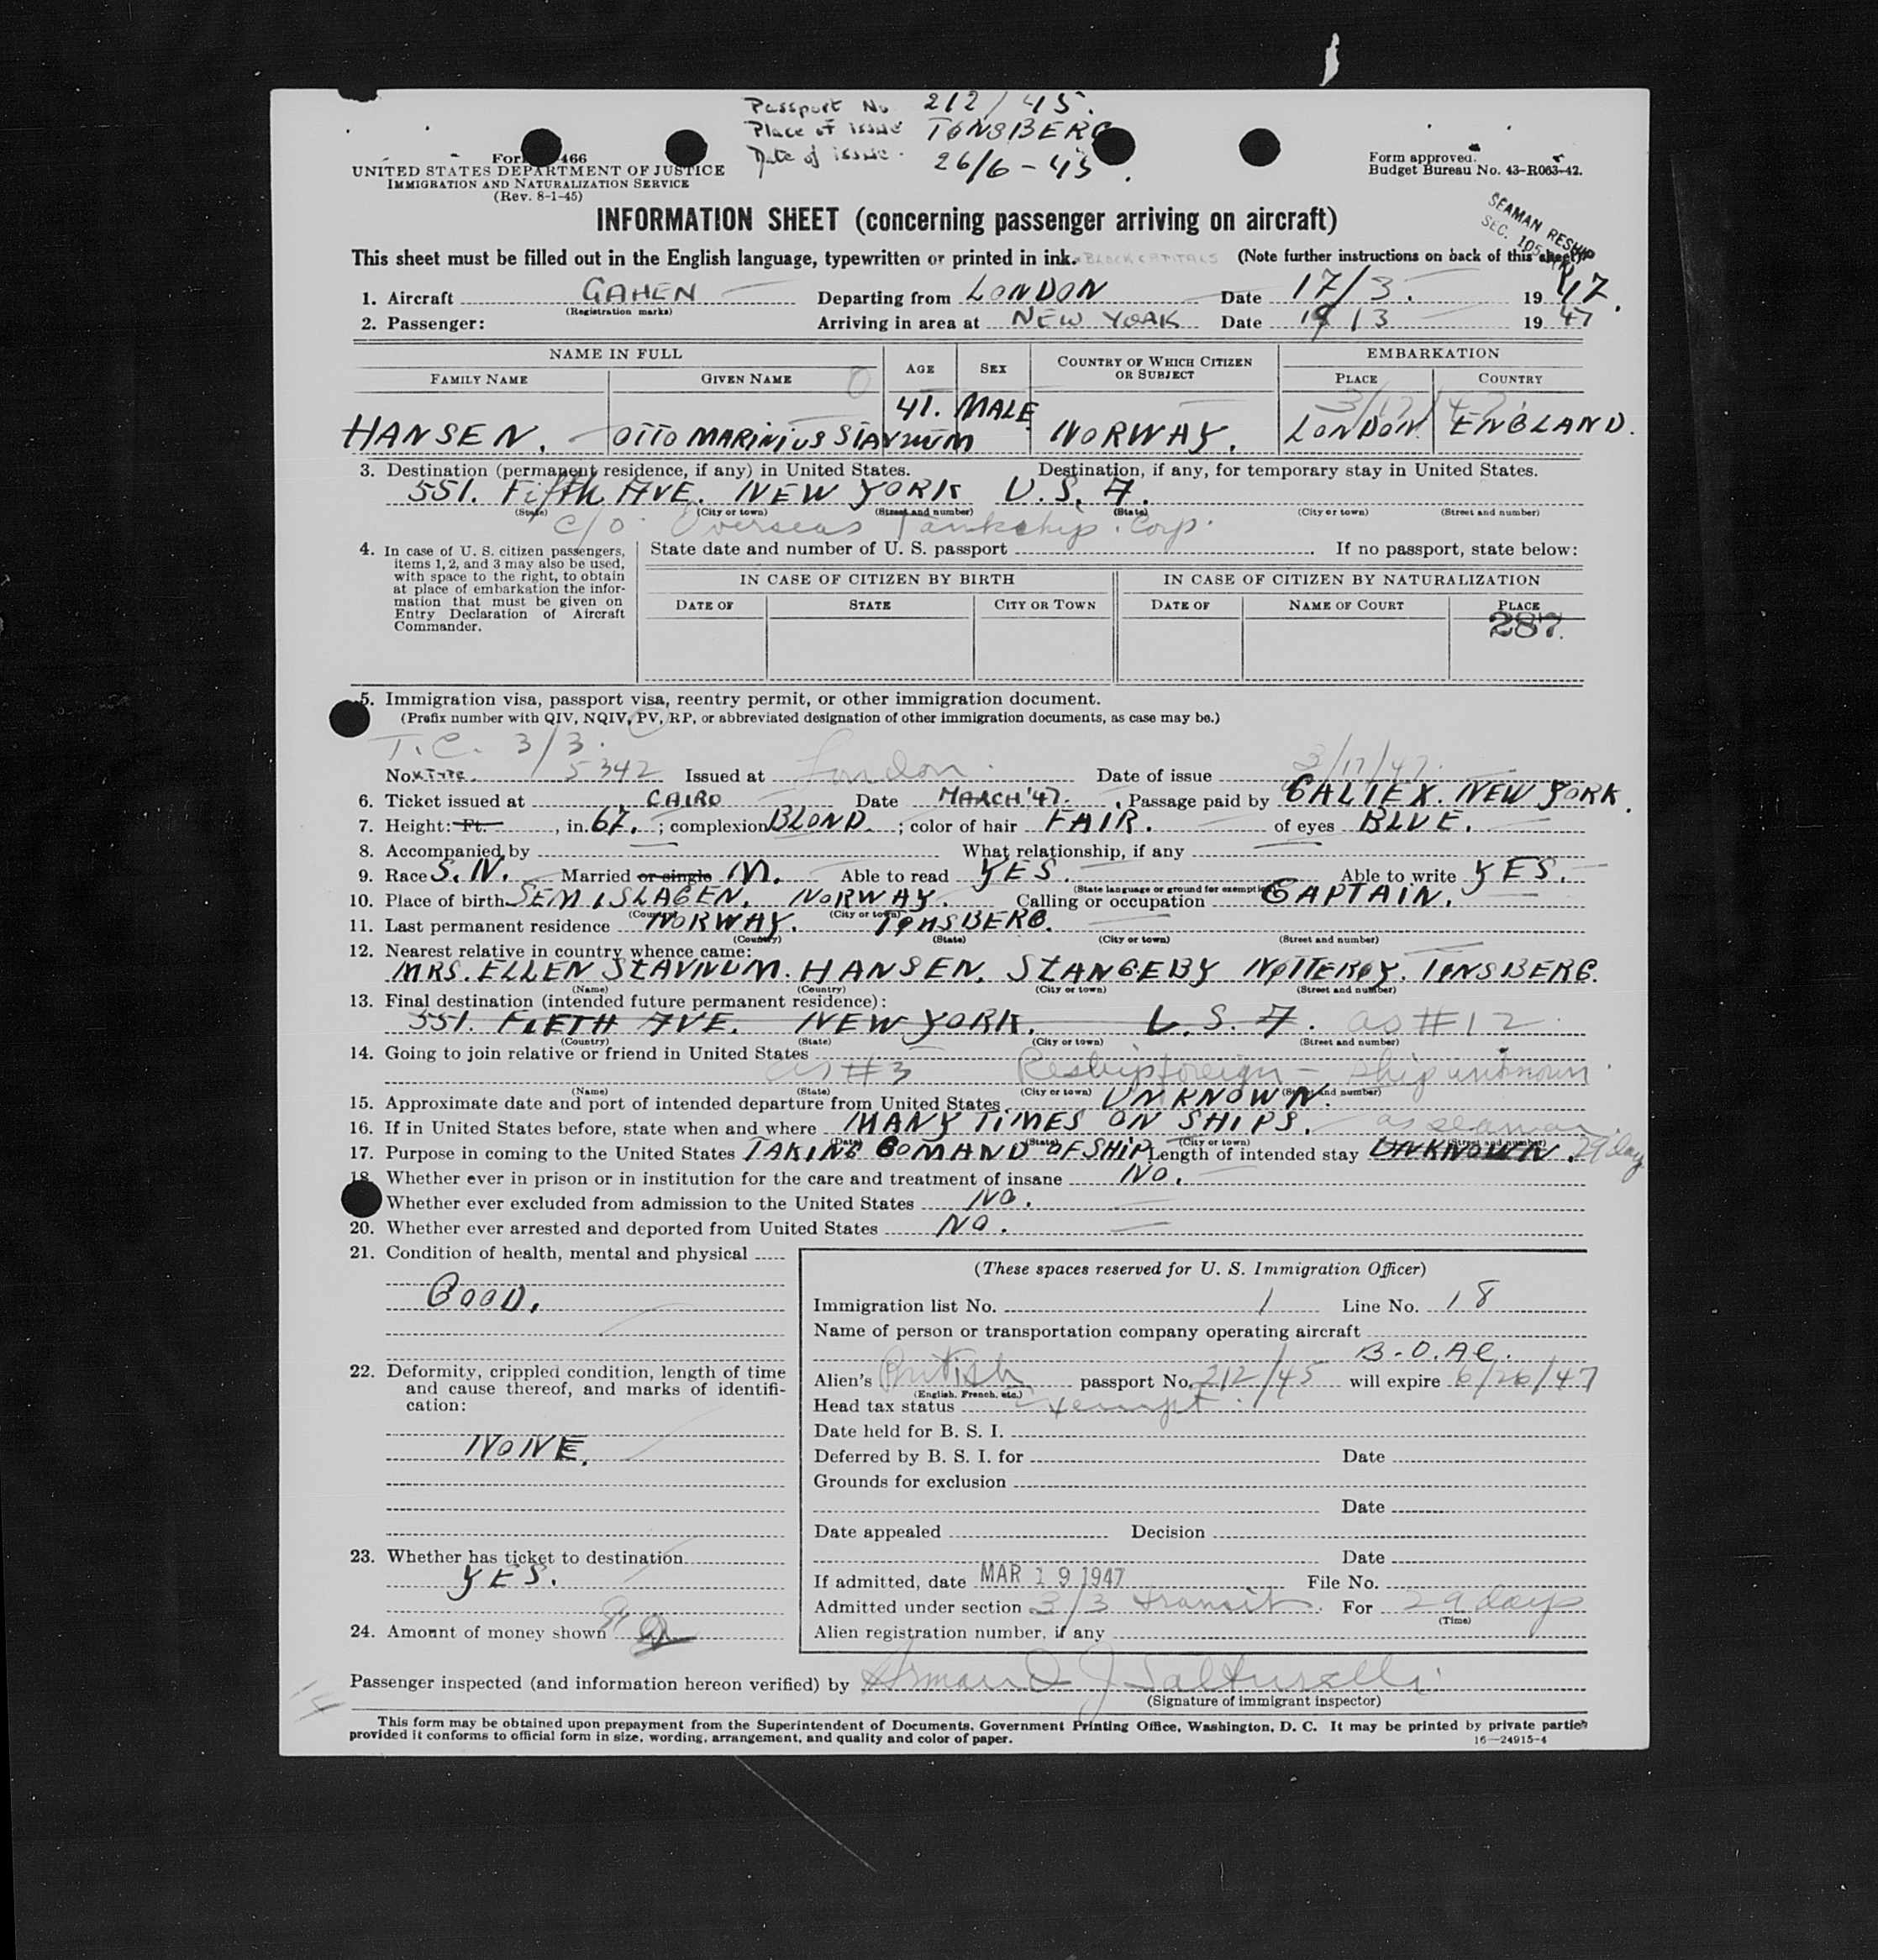 Passport No 212/45.
Place of issue TÖNSBERG
Date of issue. 26/6-45.
Form 466
UNITED STATES DEPARTMENT OF JUSTICE
IMMIGRATION AND NATURALIZATION SERVICE
(Rev. 8-1-45)
Form approved.
Budget Bureau No. 43-R063-42.
SEAMAN RESHIP
SEC. 105
INFORMATION SHEET (concerning passenger arriving on aircraft)
This sheet must be filled out in the English language, typewritten or printed in ink. BLOCK CAPITALS (Note further instructions on back of this sheet)
1. Aircraft GAHEN Departing from LONDON Date 17/3. 1947.
(Registration marks)
2. Passenger: Arriving in area at NEW YORK Date 19/3 1947
NAME IN FULL AGE SEX COUNTRY OF WHICH CITIZEN OR SUBJECT EMBARKATION
FAMILY NAME GIVEN NAME PLACE COUNTRY
3/17/47
HANSEN. OTTO MARINIUS STAVNUM 41. MALE NORWAY. LONDON. ENGLAND.
3. Destination (permanent residence, if any) in United States. Destination, if any, for temporary stay in United States.
551. Fifth AVE. NEW YORK U.S.A.
(State) (City or town) (Street and number) (State) (City or town) (Street and number)
c/o. Overseas Tankship. Corp.
4. In case of U. S. citizen passengers, items 1, 2, and 3 may also be used, with space to the right, to obtain at place of embarkation the information that must be given on Entry Declaration of Aircraft Commander.
State date and number of U. S. passport If no passport, state below:
IN CASE OF CITIZEN BY BIRTH IN CASE OF CITIZEN BY NATURALIZATION
DATE OF STATE CITY OR TOWN DATE OF NAME OF COURT PLACE
287.
5. Immigration visa, passport visa, reentry permit, or other immigration document.
(Prefix number with QIV, NQIV, PV, RP, or abbreviated designation of other immigration documents, as case may be.)
T.C. 3/3.
No. 5342 Issued at London. Date of issue 3/17/47.
6. Ticket issued at CAIRO Date MARCH '47. Passage paid by CALTEX. NEW YORK.
7. Height: Ft. , in. 67. ; complexion BLOND. ; color of hair FAIR. of eyes BLUE.
8. Accompanied by — What relationship, if any —
9. Race S.N. Married or single M. Able to read YES. Able to write YES.
(State language or ground for exemption)
10. Place of birth SEM, SLAGEN. NORWAY. Calling or occupation CAPTAIN.
(Country) (City or town)
11. Last permanent residence NORWAY. TÖNSBERG.
(Country) (State) (City or town) (Street and number)
12. Nearest relative in country whence came:
MRS. ELLEN STAVNUM. HANSEN, STANGEBY NØTTERØY. TØNSBERG.
(Name) (Country) (City or town) (Street and number)
13. Final destination (intended future permanent residence):
551. FIFTH AVE. NEW YORK. U.S.A. as #12
(Country) (State) (City or town) (Street and number)
14. Going to join relative or friend in United States
as #3 Reship foreign - ship unknown
(Name) (State) (City or town) (Street and number)
15. Approximate date and port of intended departure from United States UNKNOWN.
16. If in United States before, state when and where MANY TIMES ON SHIPS. as seaman.
(Date) (State) (City or town) (Street and number)
17. Purpose in coming to the United States TAKING COMAND OF SHIP Length of intended stay UNKNOWN. 29 day
18. Whether ever in prison or in institution for the care and treatment of insane NO.
Whether ever excluded from admission to the United States NO.
20. Whether ever arrested and deported from United States NO.
21. Condition of health, mental and physical
GOOD.
22. Deformity, crippled condition, length of time and cause thereof, and marks of identification:
NONE.
23. Whether has ticket to destination
YES.
24. Amount of money shown
(These spaces reserved for U. S. Immigration Officer)
Immigration list No. 1 Line No. 18
Name of person or transportation company operating aircraft
B.O.AC.
Alien's British passport No. 212/45 will expire 6/26/47
(English, French, etc.)
Head tax status Exempt.
Date held for B. S. I.
Deferred by B. S. I. for Date
Grounds for exclusion
Date
Date appealed Decision
Date
If admitted, date MAR 19 1947 File No.
Admitted under section 3/3 transit. For 29 days
(Time)
Alien registration number, if any
Passenger inspected (and information hereon verified) by
(Signature of immigrant inspector)
This form may be obtained upon prepayment from the Superintendent of Documents, Government Printing Office, Washington, D. C. It may be printed by private parties
provided it conforms to official form in size, wording, arrangement, and quality and color of paper.
16—24915-4